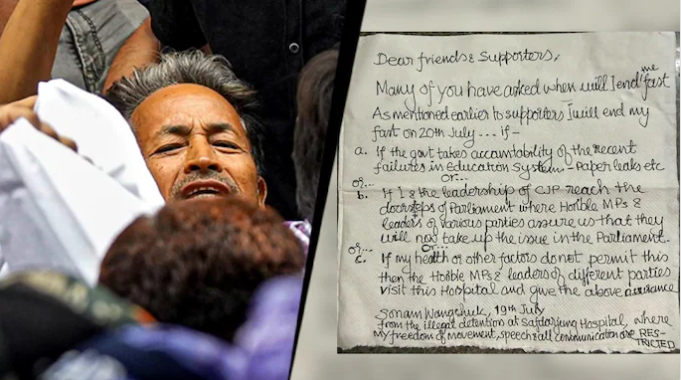 Dear friends & Supporters,
Many of you have asked when will I end me fast
As mentioned earlier to supporters I will end my
fast on 20th July .... if -
a. If the govt takes accountability of the recent
failures in Education System - Paper leaks etc
or...
or...
b. If I & the leadership of CJP reach the
doorsteps of Parliament where Hon'ble MPs &
leaders of various parties assure us that they
will now take up the issue in the Parliament.
or...
or...
c. If my health or other factors do not permit this
then the Hon'ble MPs & leaders of different parties
visit this Hospital and give the above assurance
Sonam Wangchuk, 19th July
from the illegal detention at Safdarjung Hospital, where
my freedom of movement, speech & all communication are RES-
TRICTED